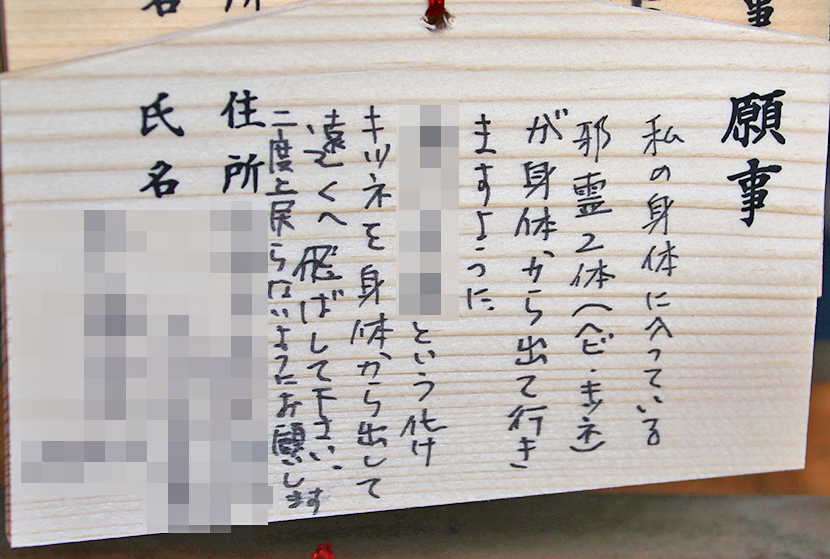 願事
私の身体に入っている
邪霊2体(ヘビ・キツネ)
が身体から出て行き
ますように
という化け
キツネを身体から出して
遠くへ飛ばして下さい。
二度と戻らないようにお願いします
住所
氏名